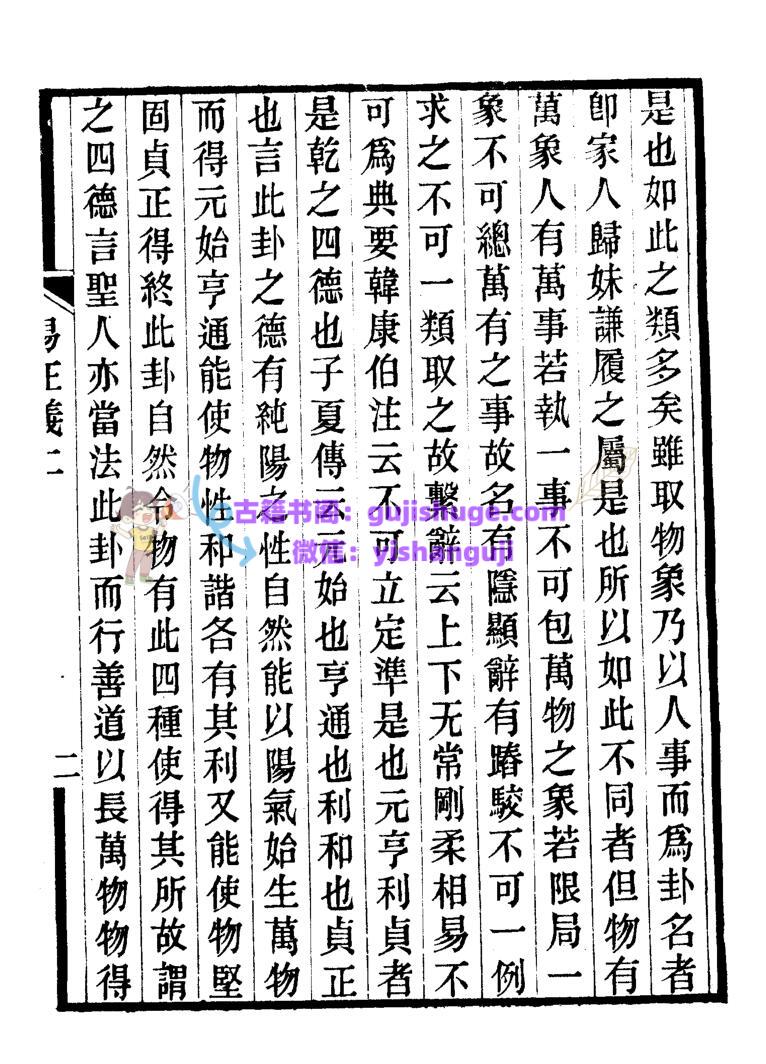 是也如此之類多矣雖取物象乃以人事而爲卦名者
卽家人歸妹謙履之屬是也所以如此不同者但物有
萬象人有萬事若執一事不可包萬物之象若限局一
象不可總萬有之事故名有隱顯辭有踳駮不可一例
求之不可一類取之故繫辭云上下无常剛柔相易不
可爲典要韓康伯注云不可立定準是也元亨利貞者
是乾之四德也子夏傳云元始也亨通也利和也貞正
也言此卦之德有純陽之性自然能以陽氣始生萬物
而得元始亨通能使物性和諧各有其利又能使物堅
固貞正得終此卦自然令物有此四種使得其所故謂
之四德言聖人亦當法此卦而行善道以長萬物物得
易正義二
二
古籍书阁：gujishuge.com
微信：yishanguji